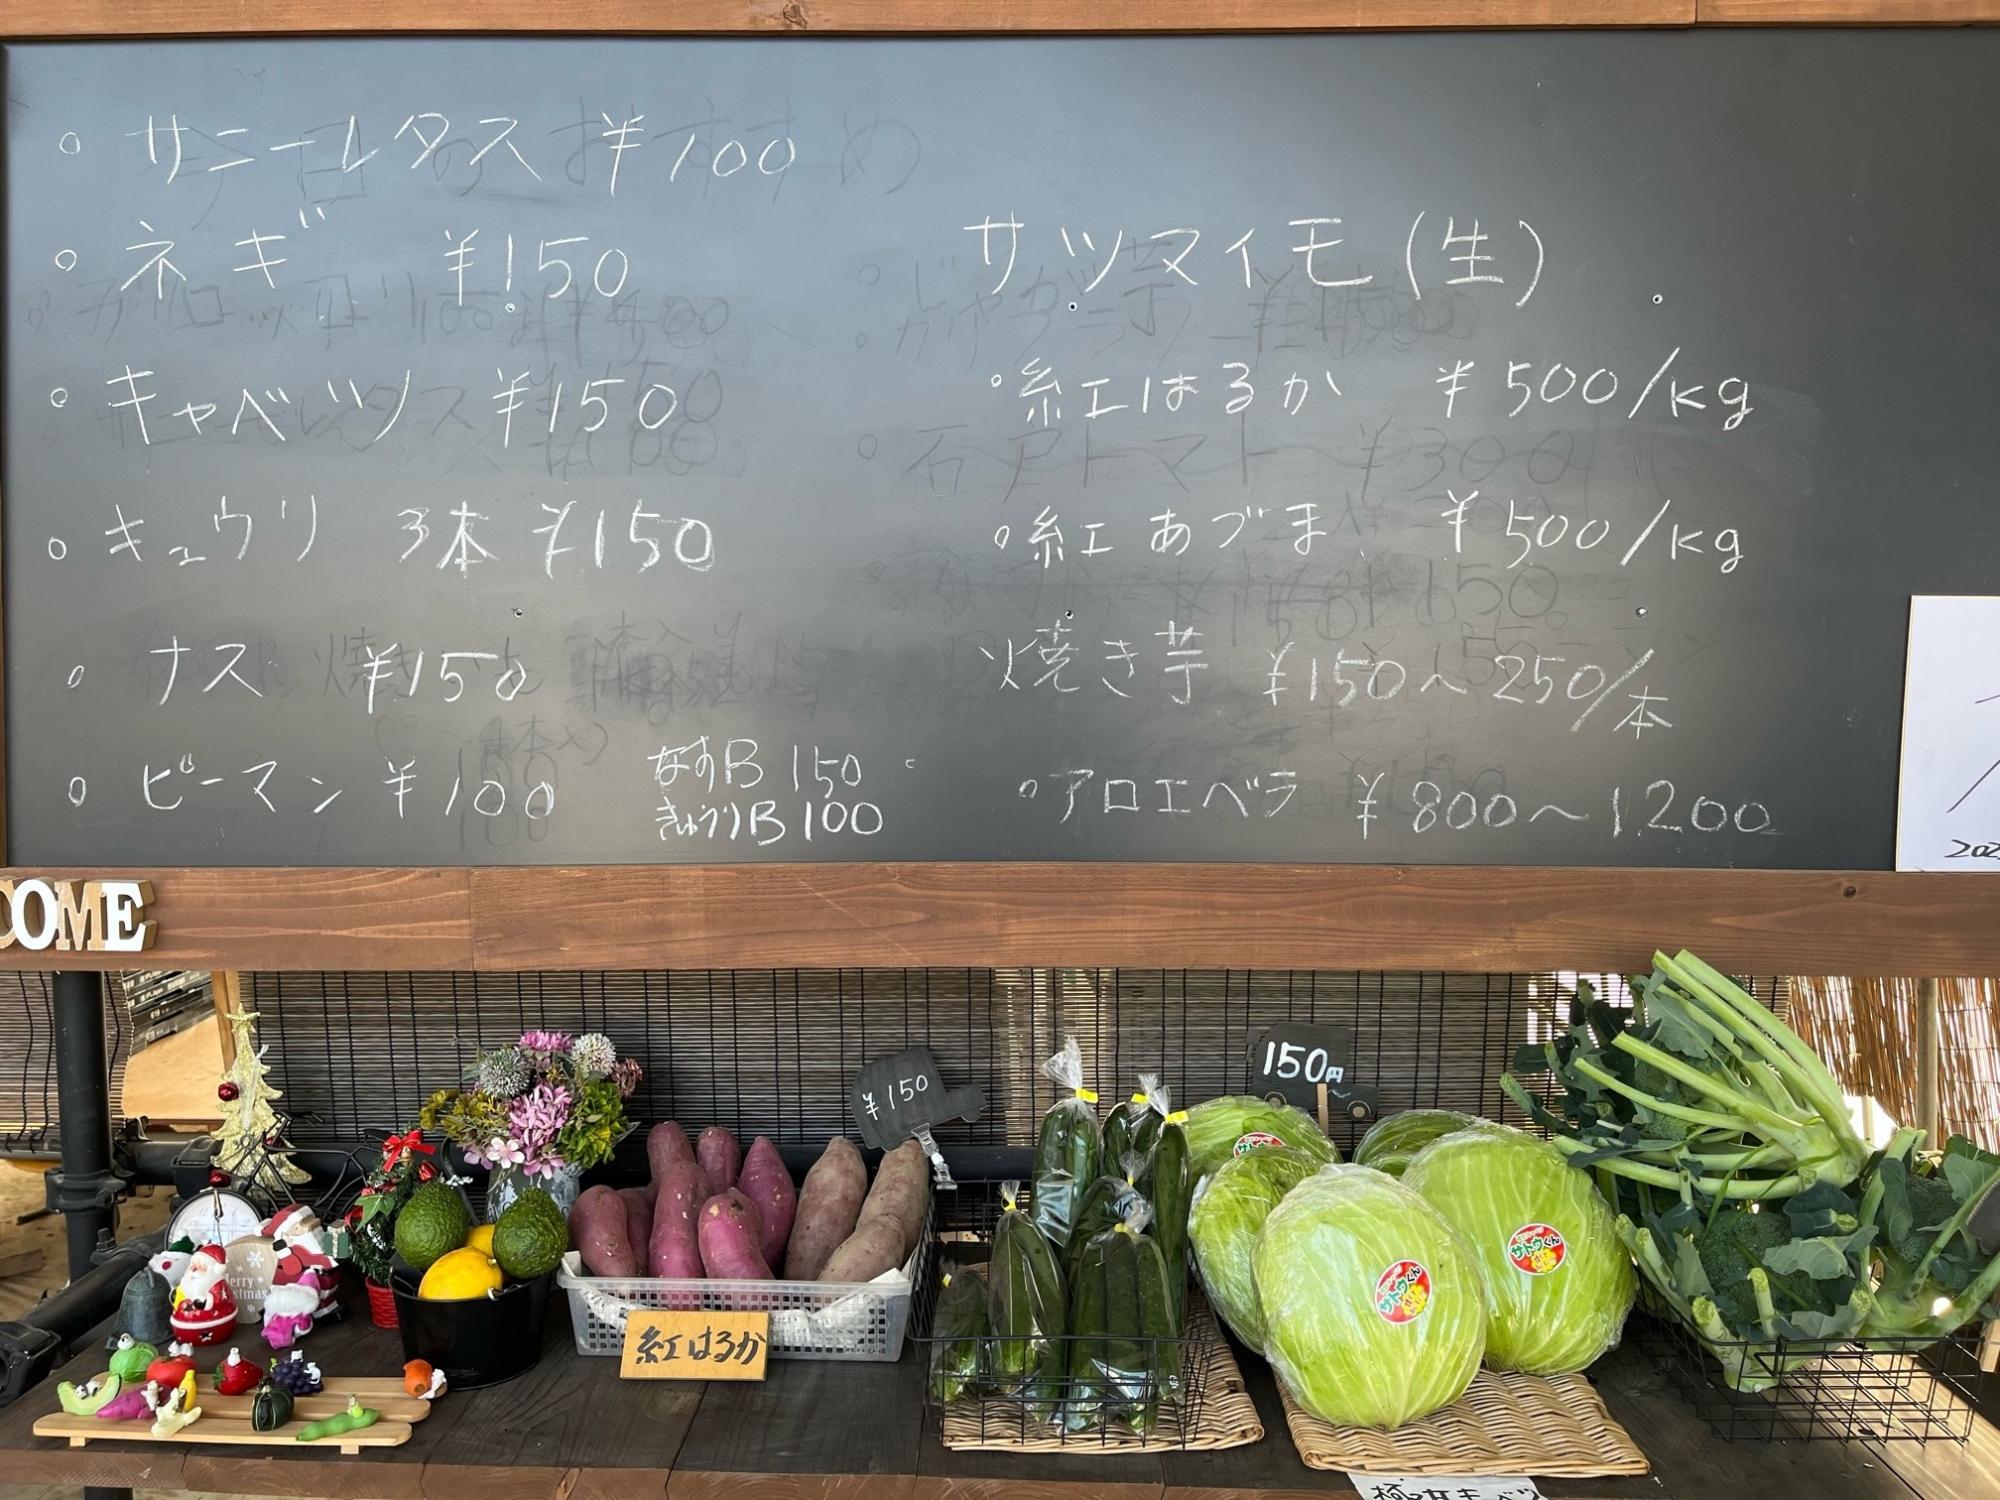 サニーレタス ¥100
ネギ ¥150
キャベツ ¥150
キュウリ 3本 ¥150
ナス ¥150
ピーマン ¥100
なすB 150
きゅうりB 100
サツマイモ(生)
紅はるか ¥500/kg
紅あづま ¥500/kg
焼き芋 ¥150〜250/本
アロエベラ ¥800〜1200
COME
¥150
150円〜
紅はるか
サトウくん
サトウくん
Merry